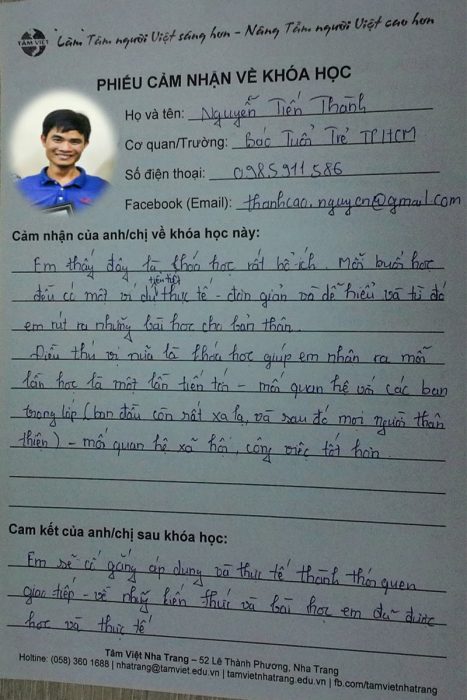 TÂM VIỆT
"Làm Tâm người Việt sáng hơn - Nâng Tầm người Việt cao hơn
PHIẾU CẢM NHẬN VỀ KHÓA HỌC
Họ và tên: Nguyễn Tiến Thành
Cơ quan/Trường: Báo Tuổi Trẻ TPHCM
Số điện thoại: 0985911586
Facebook (Email): thanhcao.nguyen@gmail.com
Cảm nhận của anh/chị về khóa học này:
Em thấy đây là khóa học rất bổ ích. Mỗi buổi học
đều có một ví dụ thực tế - đơn giản và dễ hiểu và từ đó
em rút ra những bài học cho bản thân.
Điều thú vị nữa là khóa học giúp em nhận ra mỗi
lần học là một lần tiến tới - mối quan hệ với các bạn
trong lớp (ban đầu còn rất xa lạ, và sau đó mọi người thân
thiện) - mối quan hệ xã hội, công việc tốt hơn.
Cam kết của anh/chị sau khóa học:
Em sẽ cố gắng áp dụng và thực tế thành thói quen
giao tiếp - về những kiến thức và bài học em đã được
học và thực tế
Tâm Việt Nha Trang – 52 Lê Thành Phương, Nha Trang
Hotline: (058) 360 1688 | nhatrang@tamviet.edu.vn | tamvietnhatrang.edu.vn | fb.com/tamvietnhatrang